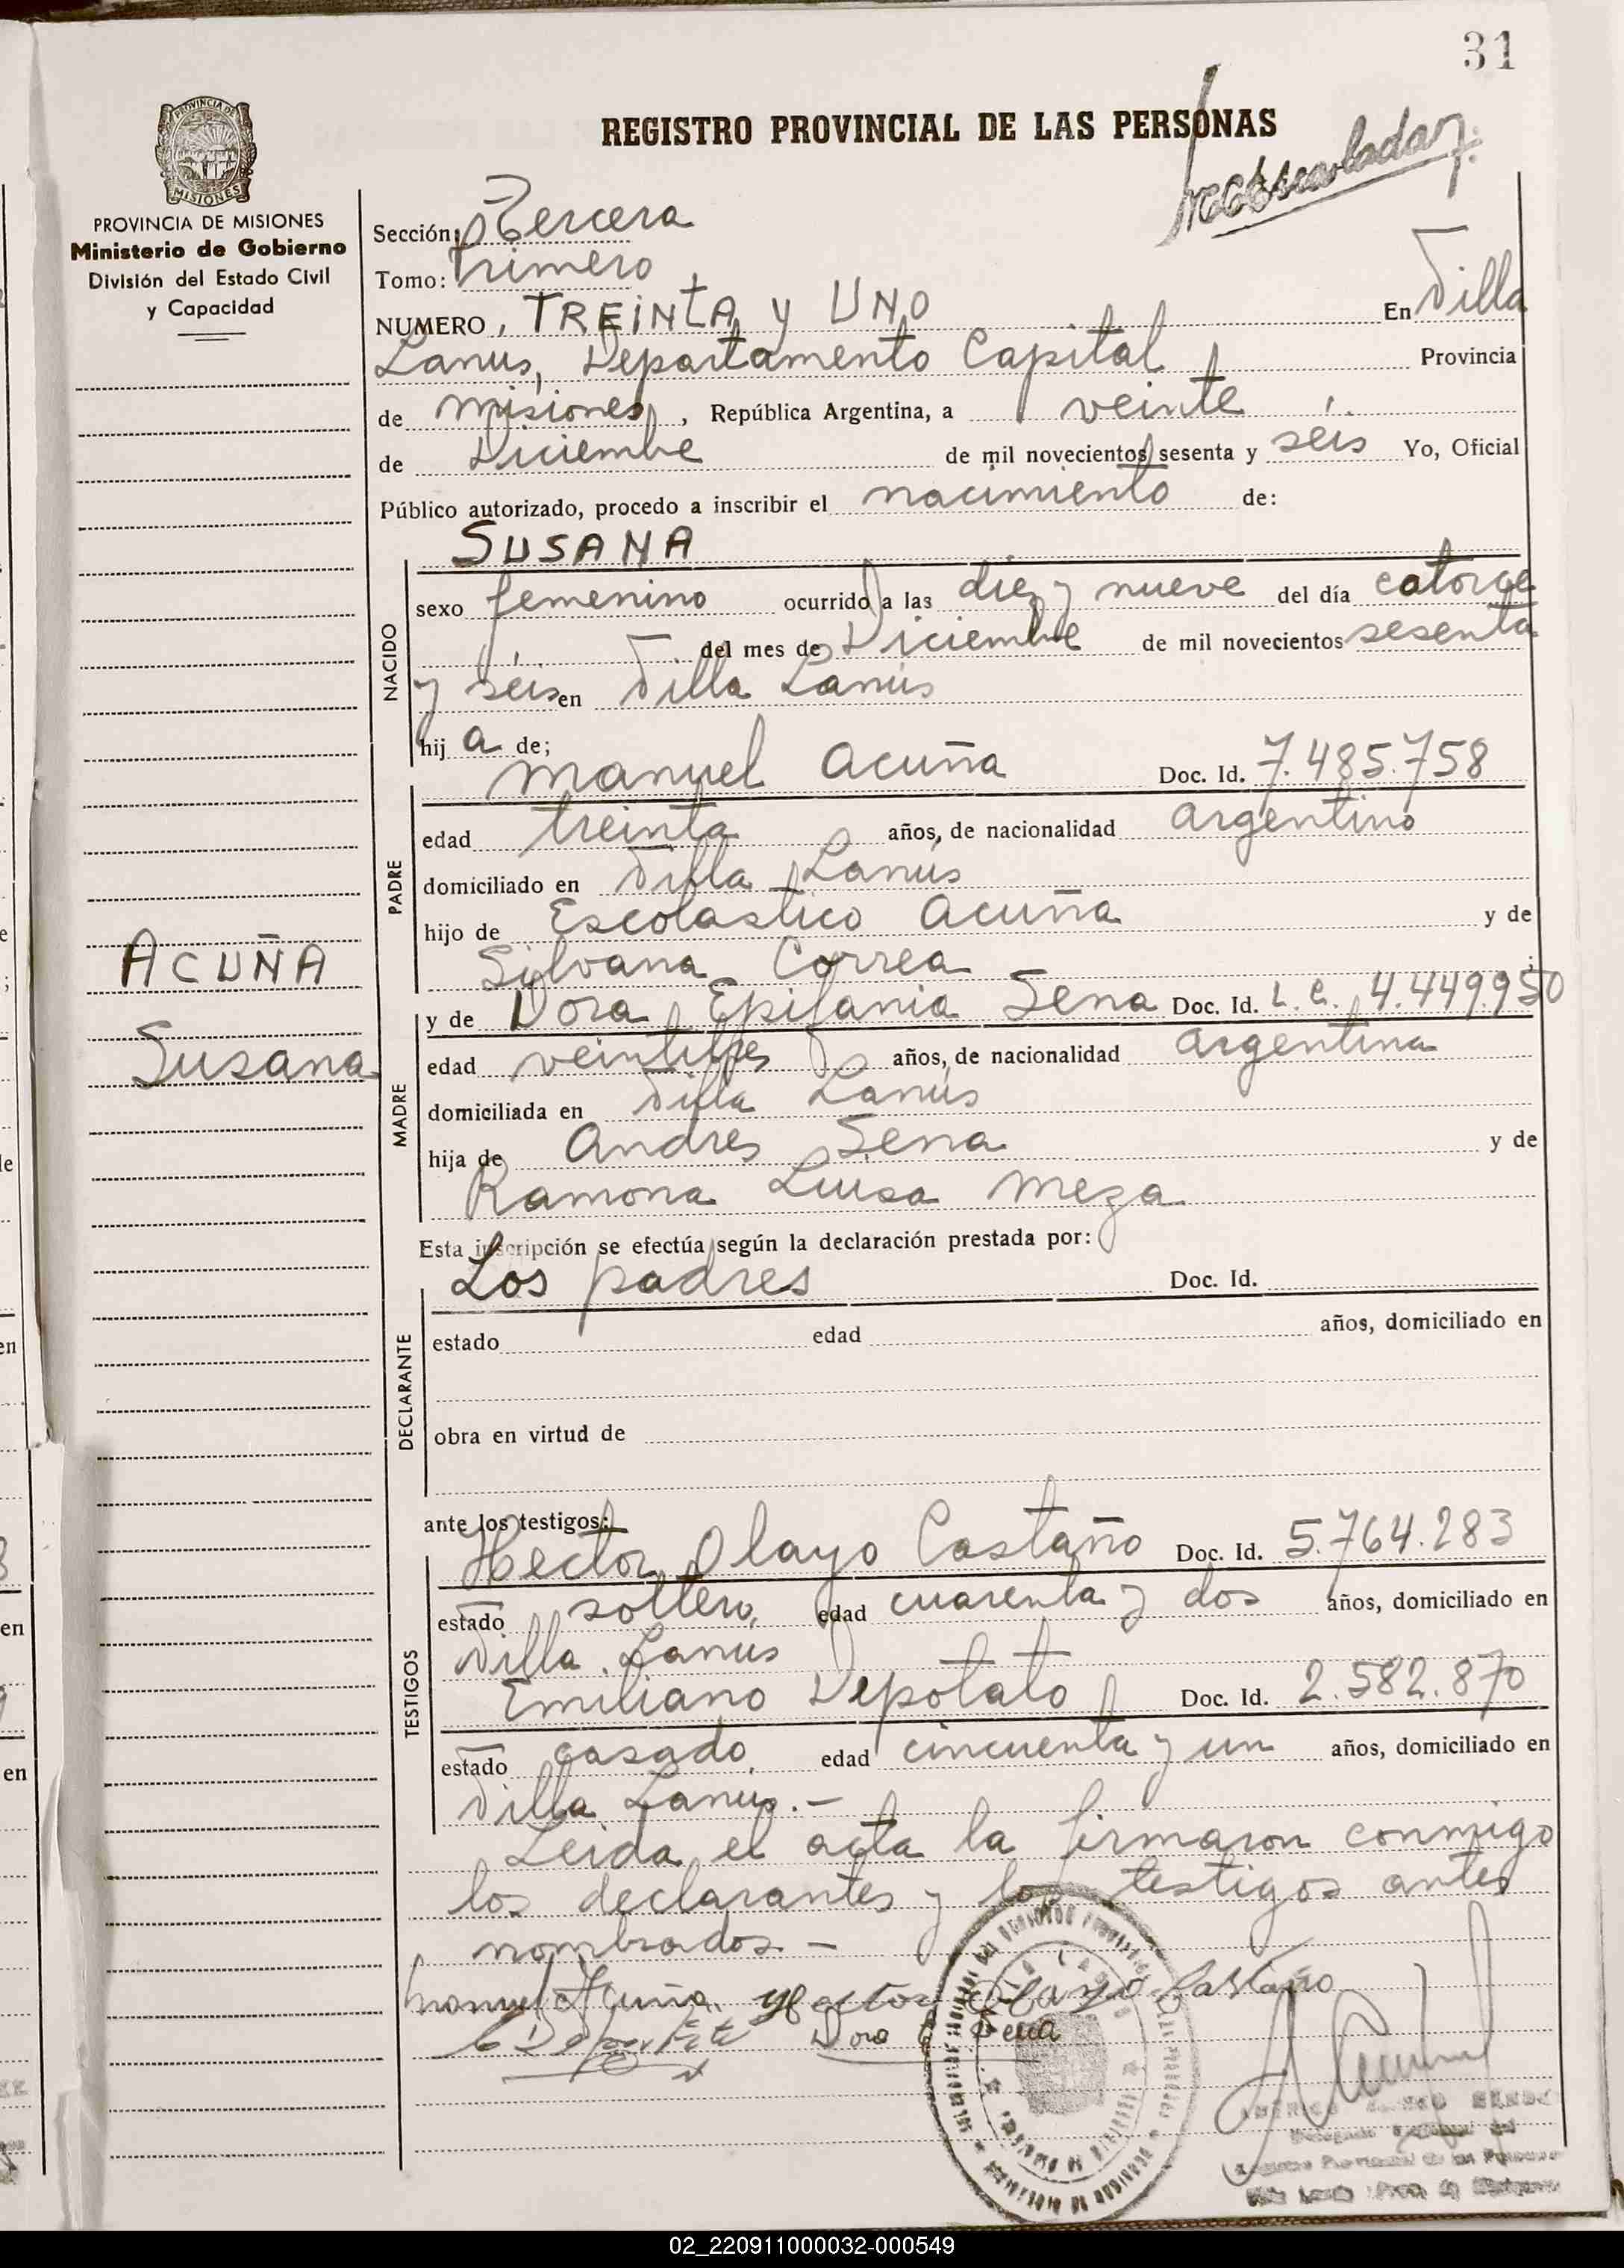 31
REGISTRO PROVINCIAL DE LAS PERSONAS
PROVINCIA DE MISIONES
Ministerio de Gobierno
División del Estado Civil
y Capacidad
Sección: Tercera
Tomo: Primero
NUMERO, TREINTA y UNO En Villa
Lanus, Departamento Capital Provincia
de Misiones, República Argentina, a veinte
de Diciembre de mil novecientos sesenta y seis Yo, Oficial
Público autorizado, procedo a inscribir el nacimiento de:
SUSANA
NACIDO
sexo femenino ocurrido a las diez y nueve del día catorce
del mes de Diciembre de mil novecientos sesenta
y seis en Villa Lanús
hij a de;
PADRE
Manuel Acuña Doc. Id. 7.485.758
edad treinta años, de nacionalidad argentino
domiciliado en Villa Lanús
hijo de Escolastico Acuña y de
Silvana Correa
ACUÑA
Susana
MADRE
y de Dora Epifania Sena Doc. Id. L.C. 4.449.950
edad años, de nacionalidad argentina
domiciliada en Villa Lanús
hija de Andres Sena y de
Ramona Luisa Meza
Esta inscripción se efectúa según la declaración prestada por:
DECLARANTE
Los padres Doc. Id.
estado edad años, domiciliado en
obra en virtud de
ante los testigos:
TESTIGOS
Hector Olayo Castaño Doc. Id. 5.764.283
estado soltero, edad cuarenta y dos años, domiciliado en
Villa Lanús
Emiliano Depotato Doc. Id. 2.582.870
estado casado, edad cincuenta y un años, domiciliado en
Villa Lanus.-
Leida el acta la firmaron conmigo
los declarantes y los testigos antes
nombrados.-
Manuel Acuña. Hector Olayo Castaño
Dora E Sena
02_220911000032-000549